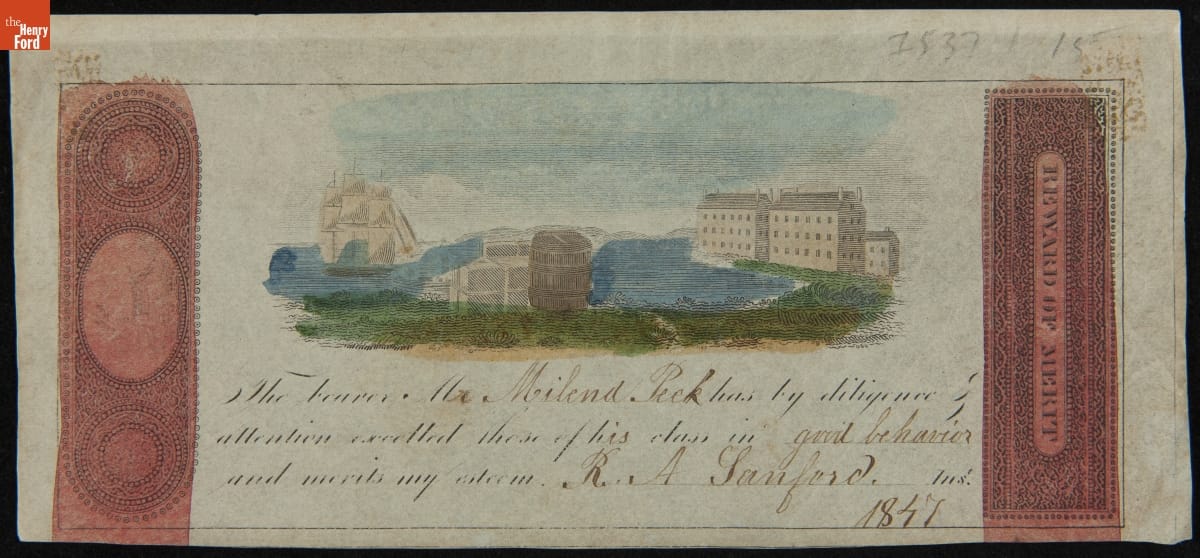 the
Henry
Ford
1837 15
REWARD OF MERIT
The bearer Mr Milend Peck has by diligence &
attention excelled those of his class in good behavior
and merits my esteem. R. A Sanford. Ins!
1847